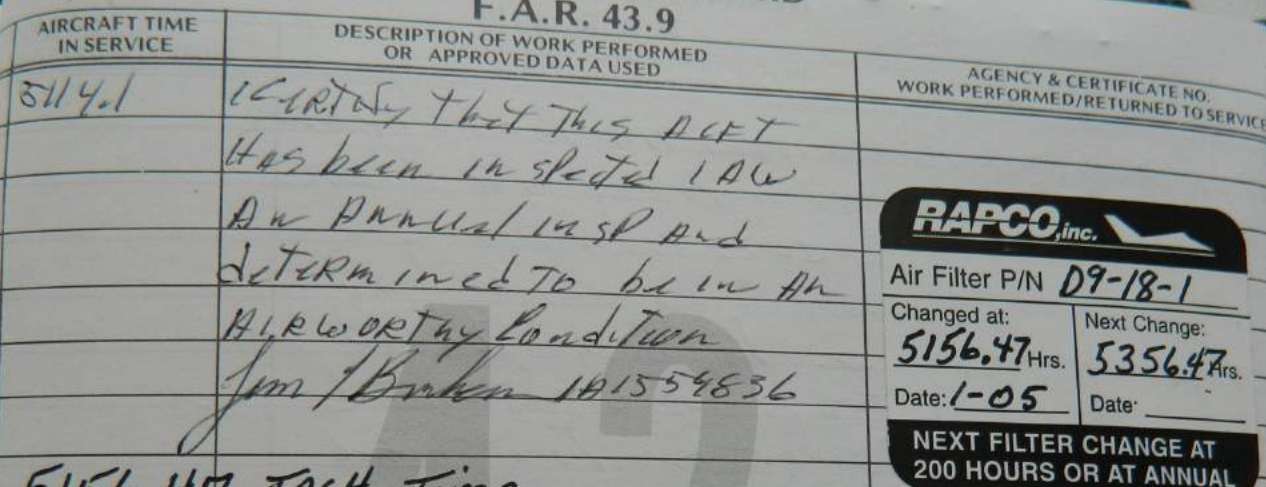 F.A.R. 43.9
AIRCRAFT TIME
IN SERVICE
DESCRIPTION OF WORK PERFORMED
OR APPROVED DATA USED
AGENCY & CERTIFICATE NO.
WORK PERFORMED/RETURNED TO SERVICE
5114.1
I CERTIFY That This ACFT
Has been inspected IAW
An Annual insp And
determined To be in An
AIRWORTHY Condition
Jim IA1554836
RAPCO, inc.
Air Filter P/N D9-18-1
Changed at:
5156.47 Hrs.
Date: 1-05
Next Change:
5356.47 Hrs.
Date:
NEXT FILTER CHANGE AT
200 HOURS OR AT ANNUAL
TACH Time